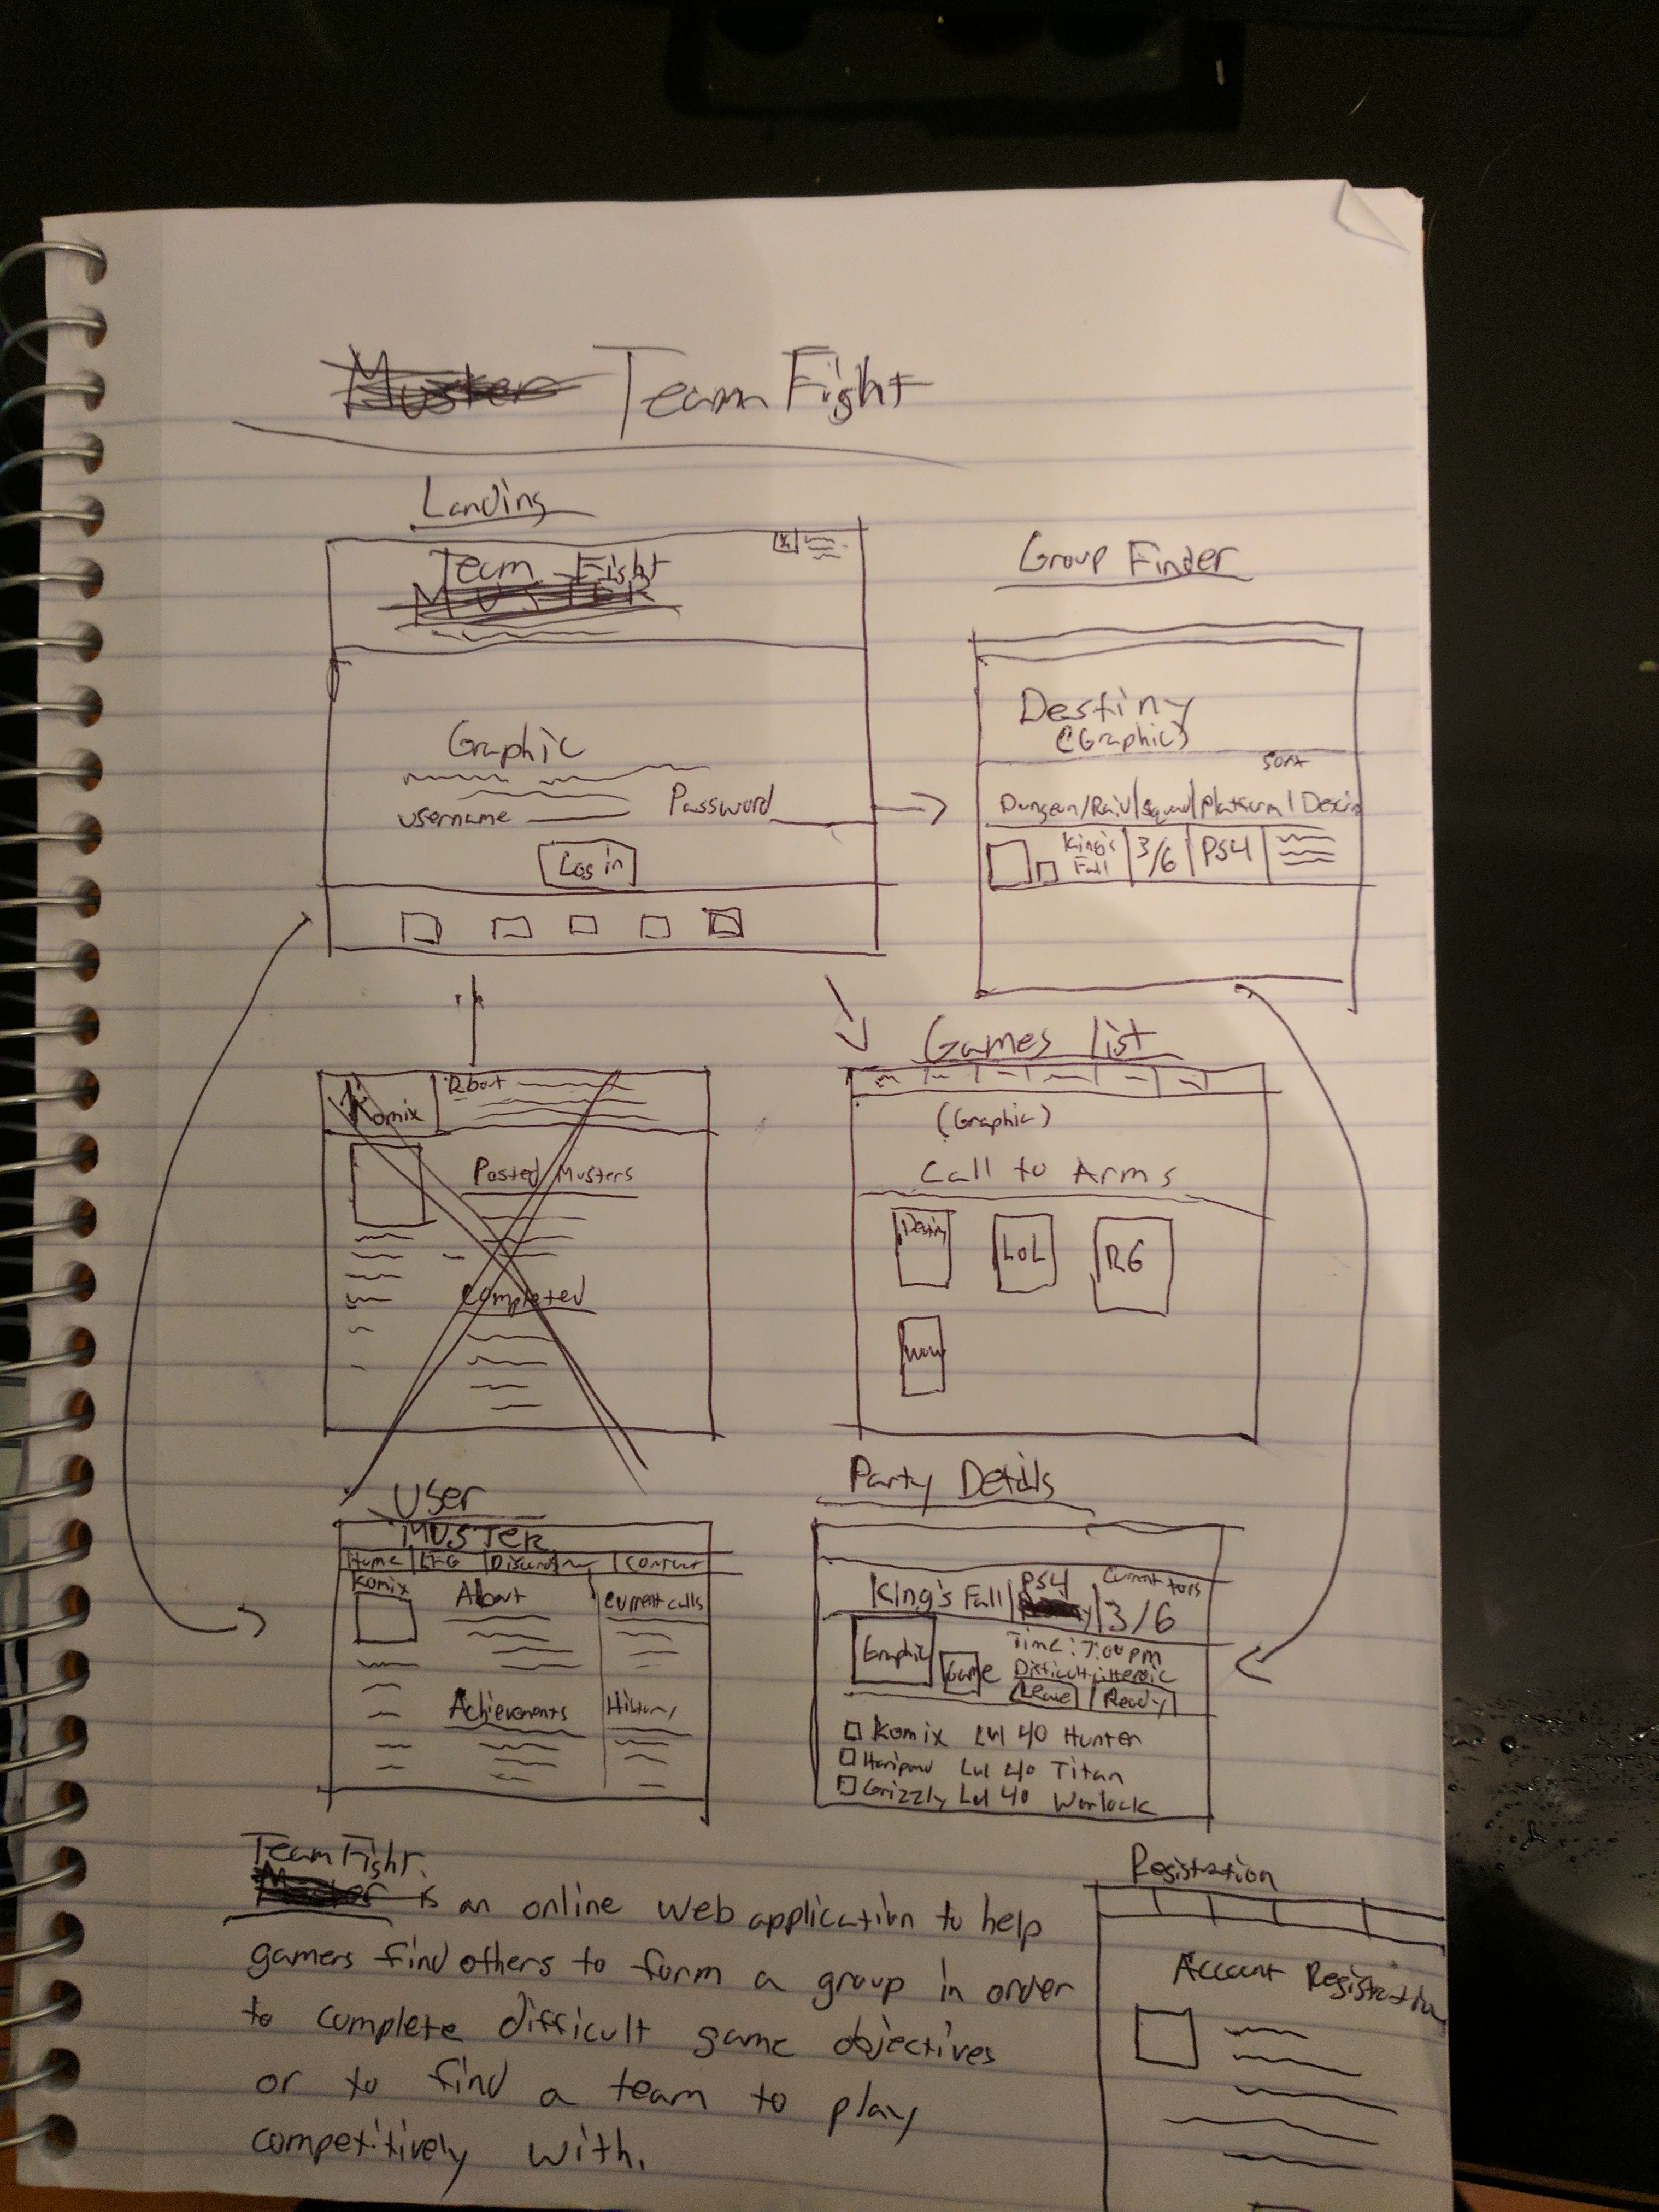 Muster Team Fight
Landing
Team Fight
MUSTER
Graphic
username
Password
Log in
Group Finder
Destiny
(Graphic)
Sort
Dungeon/Raid|Squad|Platform|
King's Fall
3/6
PS4
Komix
About
Posted Musters
Completed
Games list
(Graphic)
Call to Arms
Destiny
LoL
R6
WoW
User
MUSTER
Home
LFG
Contact
Komix
About
Current calls
Achievements
History
Party Details
King's Fall
PS4
3/6
Graphic
Game
Time: 7:00 pm
Difficulty: Heroic
Leave
Ready
Komix Lvl 40 Hunter
Lvl 40 Titan
Grizzly Lvl 40 Warlock
Team Fight
Muster is an online web application to help
gamers find others to form a group in order
to complete difficult game objectives
or to find a team to play
competitively with.
Registration
Account Registration